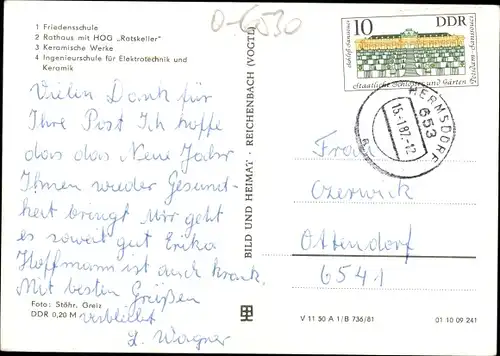 1 Friedensschule
2 Rathaus mit HOG „Ratskeller"
3 Keramische Werke
4 Ingenieurschule für Elektrotechnik und
Keramik
Vielen Dank für
Ihre Post Ich hoffe
das das Neue Jahr
Ihnen wieder Gesund-
heit bringt Mir geht
es soweit gut Erika
Hoffmann ist auch krank
Mit besten Grüßen
verbleibt
L. Wagner
Foto: Stöhr, Greiz
DDR 0,20 M
BILD UND HEIMAT · REICHENBACH (VOGTL)
D-6530
10 DDR
Schloß Sanssouci
Potsdam-Sanssouci
Staatliche Schlösser und Gärten
HERMSDORF
653
15.-1.87.-12
Frau
Czerwick
Ottendorf
6541
V 11 50 A 1/B 736/81
01 10 09 241